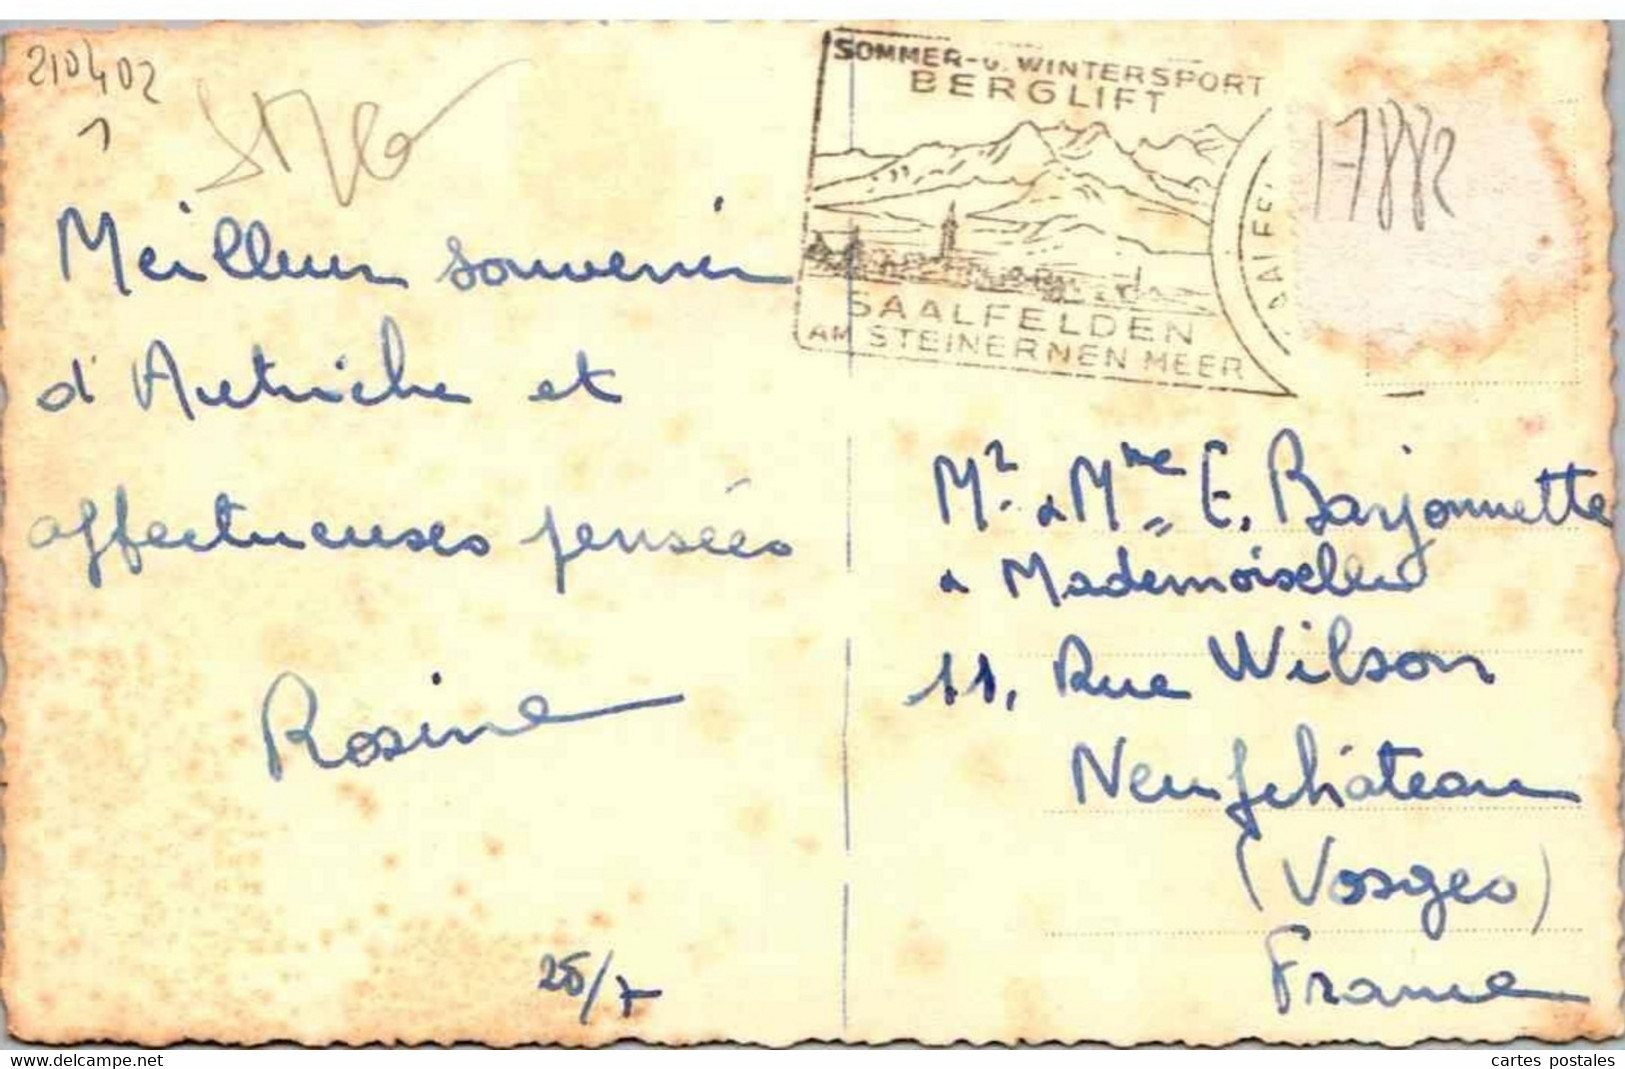 210402
1
Meilleur souvenir
d'Autriche et
affectueuses pensées
Rosine
25/7
SOMMER-U. WINTERSPORT
BERGLIFT
SAALFELDEN
AM STEINERNEN MEER
SAALFE
17882
Mr & Mme E. Barjonnette
& Mademoiselle
11, Rue Wilson
Neufchâteau
(Vosges)
France
www.delcampe.net
cartes postales